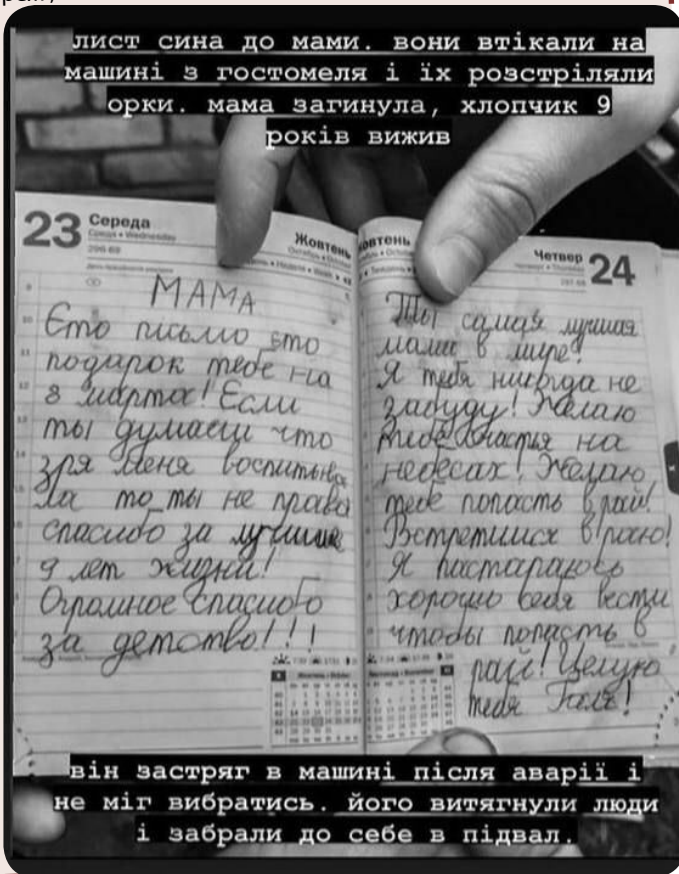 лист сина до мами. вони втікали на
машині з гостомеля і їх розстріляли
орки. мама загинула, хлопчик 9
років вижив
23 Середа
Жовтень
МАМА
Єто письмо єто
подарок тебе на
8 марта! Если
ты думаеш что
зря меня воспитыва
ла то ты не права
спасибо за лучшие
9 лет жизни!
Огромное спасибо
за детство!!!
Жовтень
Четвер 24
Ты самая лучшая
мама в мире!
Я тебя никогда не
забуду! Желаю
тебе счастья на
небесах! Желаю
тебе попасть в рай!
Встретимся в раю!
Я пастараюсь
хорошо себя вести
чтобы попасть в
рай! Целую
тебя Галя!
він застряг в машині після аварії і
не міг вибратись. його витягнули люди
і забрали до себе в підвал.